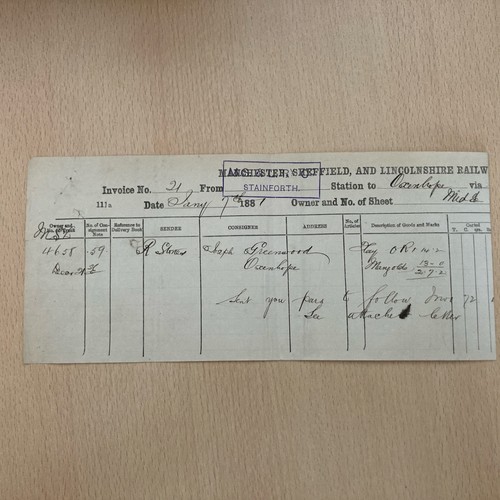 MANCHESTER, SHEFFIELD, AND LINCOLNSHIRE RAILW
STAINFORTH.
Invoice No. 21 From Station to Oxenhope via
111a Date Jany 7th 1881 Owner and No. of Sheet Mid
Owner and No. of Vehicle No. of Consignment Note Reference to Delivery Book SENDER CONSIGNEE ADDRESS No. of Articles Description of Goods and Marks Carted T. C. qrs.
4658 59 R Stones Joseph Greenwood Hay
Oxenhope
Sent you pars to follow Invo 72
See attached letter